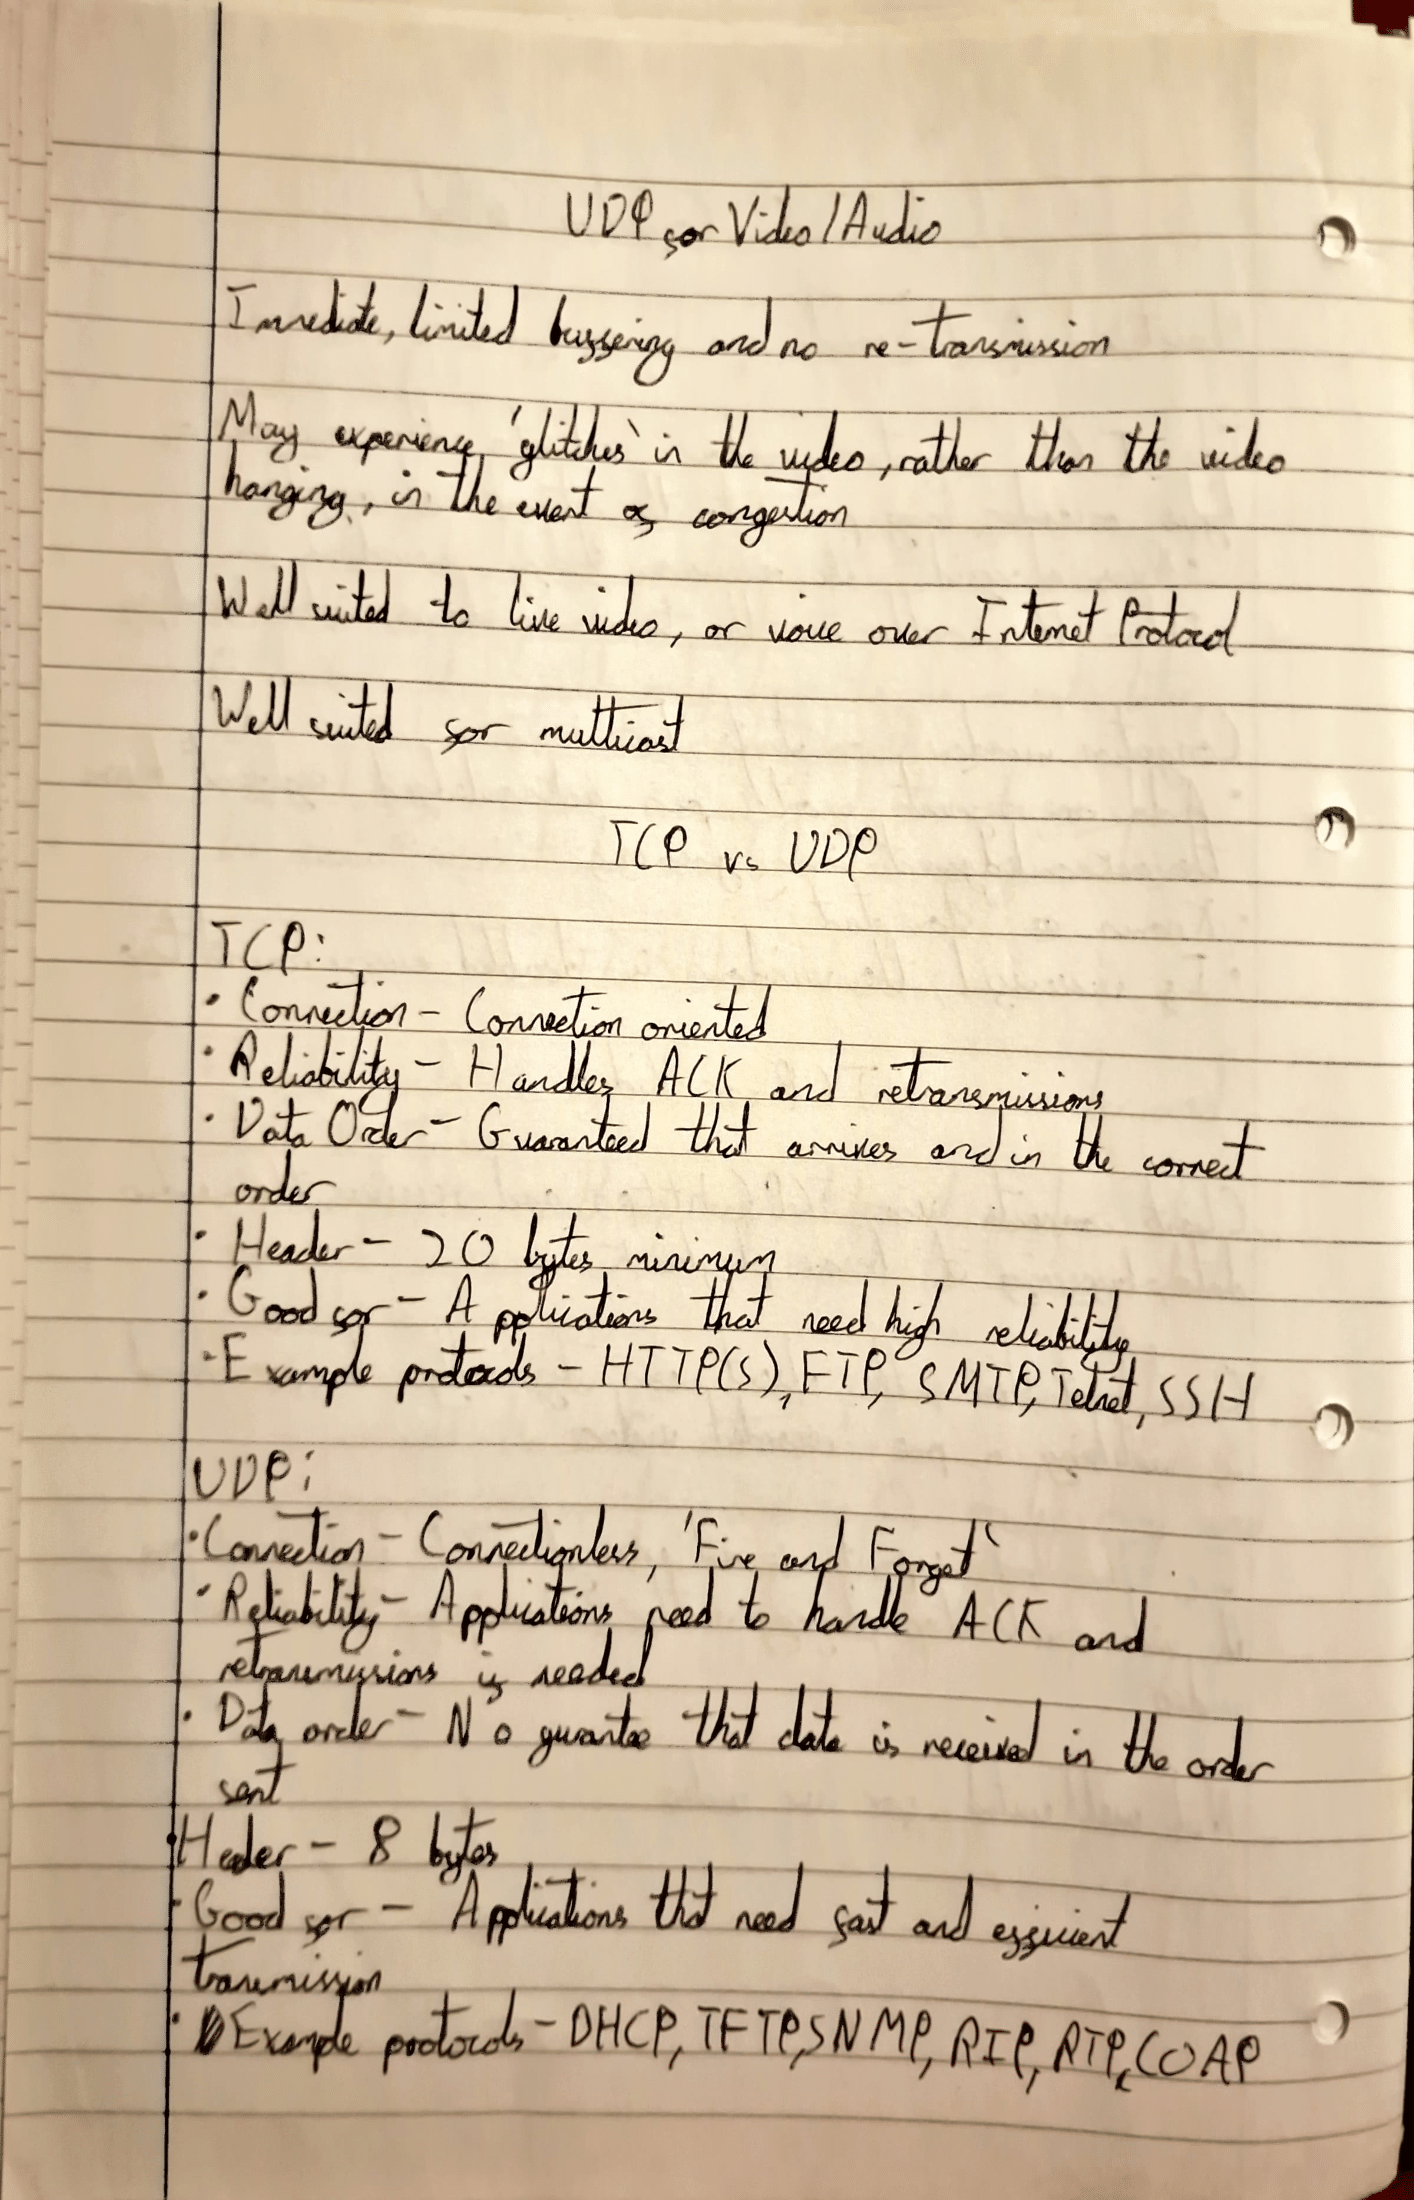 UDP for Video/Audio
Immediate, limited buffering and no re-transmission
May experience 'glitches' in the video, rather than the video
hanging, in the event of congestion
Well suited to live video, or voice over Internet Protocol
Well suited for multicast
TCP vs UDP
TCP:
· Connection - Connection oriented
· Reliability - Handles ACK and retransmissions
· Data Order - Guaranteed that arrives and in the correct
order
· Header - 20 bytes minimum
· Good for - Applications that need high reliability
· Example protocols - HTTP(S), FTP, SMTP, Telnet, SSH
UDP:
· Connection - Connectionless, 'Fire and Forget'
· Reliability - Applications need to handle ACK and
retransmissions if needed
· Data order - No gurantee that data is received in the order
sent
· Header - 8 bytes
· Good for - Applications that need fast and efficient
transmission
· Example protocols - DHCP, TFTP, SNMP, RIP, RTP, COAP